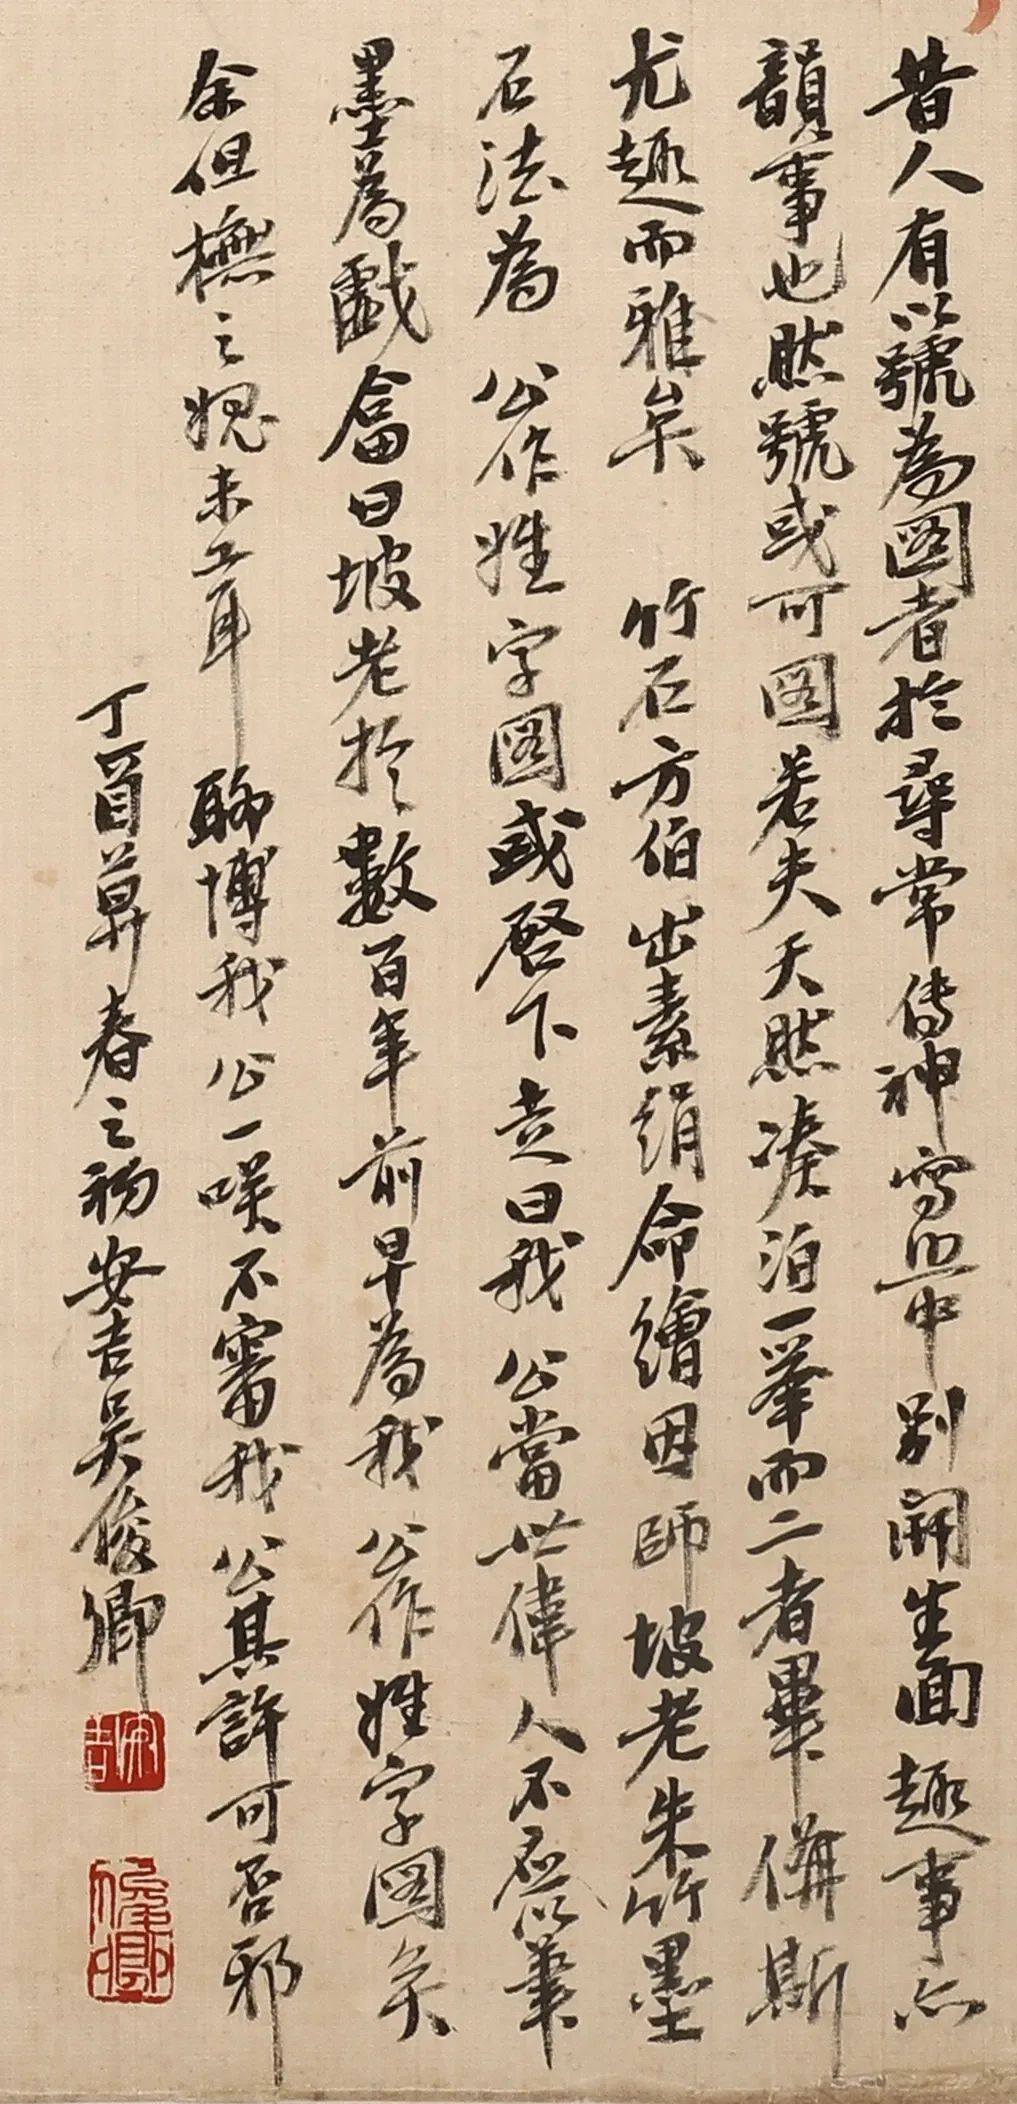 昔人有以號為圖者於尋常傳神寫照中別開生面趣事亦
韻事也然號或可圖若夫天然湊泊一舉而二者畢備斯
尤趣而雅矣 竹石方伯出素絹命繪因師坡老朱竹墨
石法為 公作姓字圖或啓下走曰我 公當世偉人不應以筆
墨為戲畣曰坡老於數百年前早為我 公作姓字圖矣
余但橅之媿未工耳 聊博我 公一咲不審我 公其許可否邪
丁酉昇春之初安吉吳俊卿
安吉
俊卿